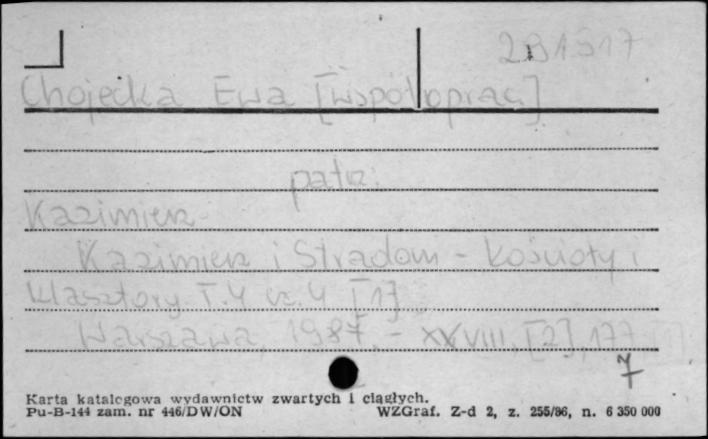 2B1517
Chojecka Ewa [współoprac.]
patrz:
Kazimierz
Kazimierz i Stradom - kościoły i
klasztory. T.4 cz. 4 [1]
Warszawa, 1987. - XXVIII, [2], 177
7
Karta katalogowa wydawnictw zwartych i ciągłych.
Pu-B-144 zam. nr 446/DW/ON WZGraf. Z-d 2, z. 255/86, n. 6 350 000